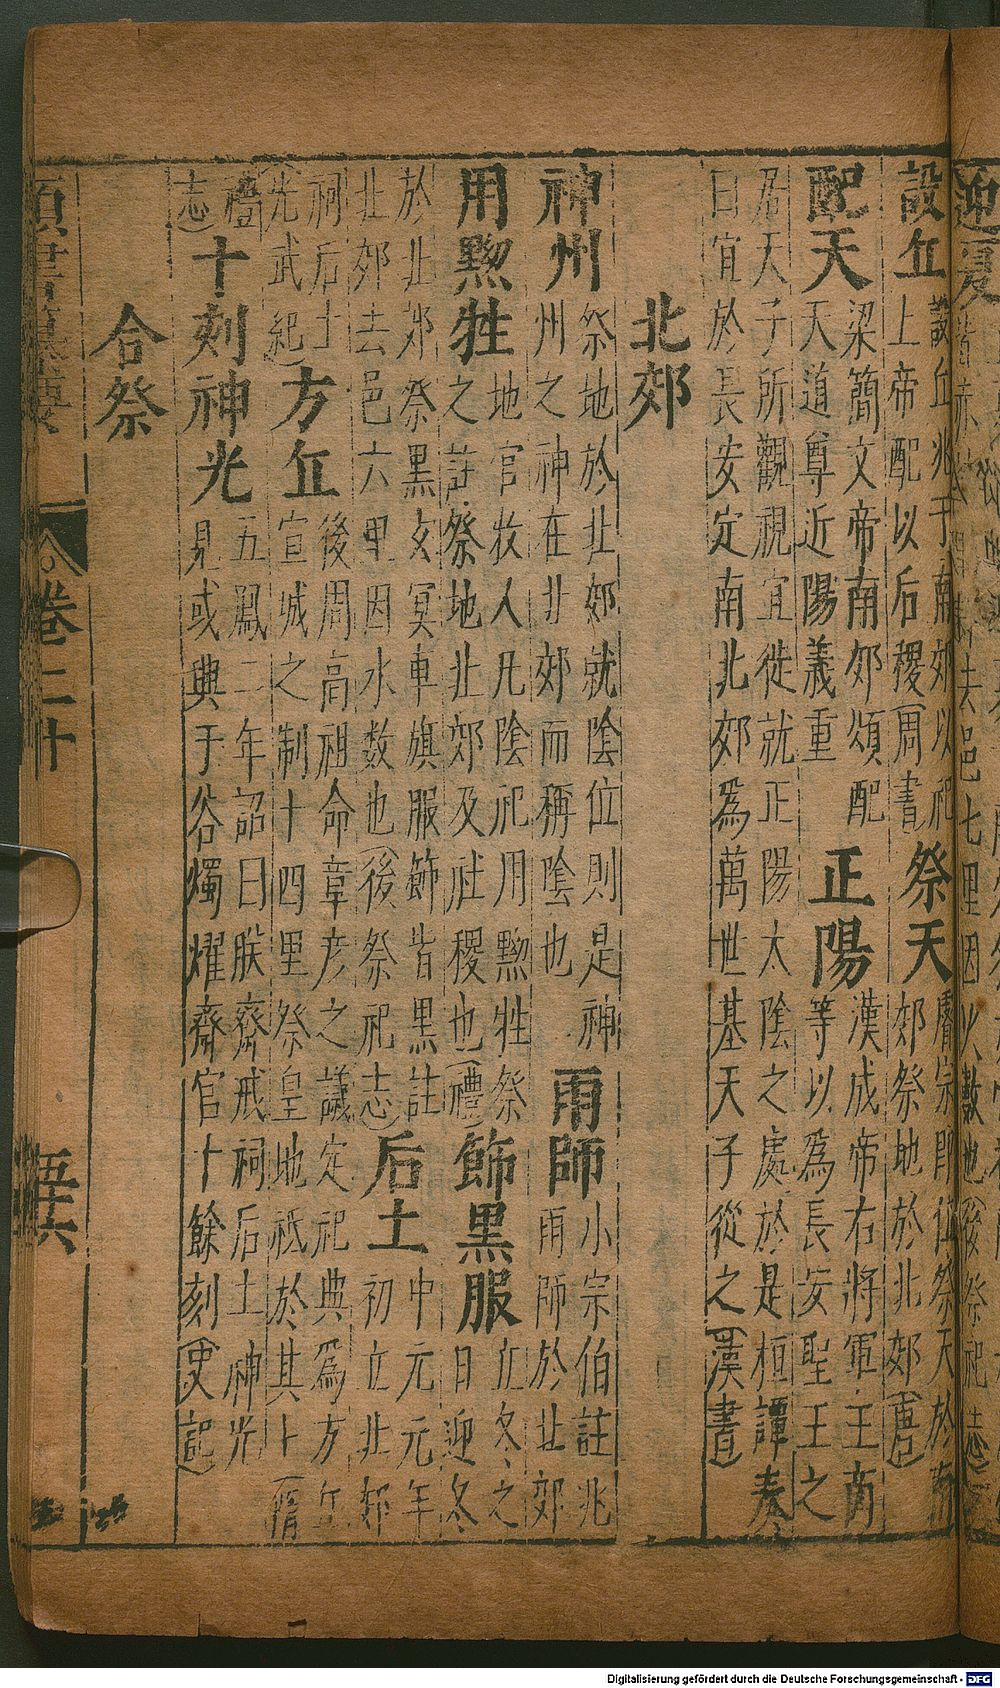 設丘 設丘兆于南郊以祀上帝配以后稷(周書) 祭天 膚宗即位祭天於南郊祭地於北郊(唐)
配天 梁簡文帝南郊頌配天天道尊近陽義重 正陽 漢成帝右將軍王商等以為長安聖王之
居天子所觀視宜徙就正陽太陰之處於是桓譚奏
日宜於長安定南北郊為萬世基天子從之(漢書)
北郊
神州 祭地於北郊就陰位則是神州之神在北郊而稱陰也 雨師 小宗伯註兆雨師於北郊
用黝牲 地官牧人凡陰祀用黝牲祭之註祭地北郊及社稷也(禮) 飾黑服 立冬之日迎冬
於北郊祭黑玄冥車旗服飾皆黑註北郊去邑六里因水数也(後祭祀志) 后土 中元元年初立北郊
祠后土光武紀 方丘 後周高祖命章彥之議定祀典為方丘宣城之制十四里祭皇地祇於其上(隋
禮志) 十刻神光 五鳳二年詔曰朕齋戒祠后土神光見或興于谷燭燿齋宮十餘刻(史記)
合祭
卷二十
五十六
Digitalisierung gefördert durch die Deutsche Forschungsgemeinschaft - DFG